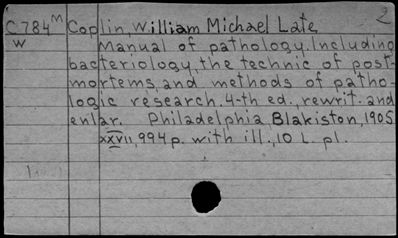 2
C784M Coplin, William Michael Late
W Manual of pathology. Including
bacteriology, the technic of post-
mortems, and methods of patho-
logic research. 4-th ed., rewrit. and
enlar. Philadelphia, Blakiston, 1905
xxvii, 994 p. with ill., 10 L. pl.